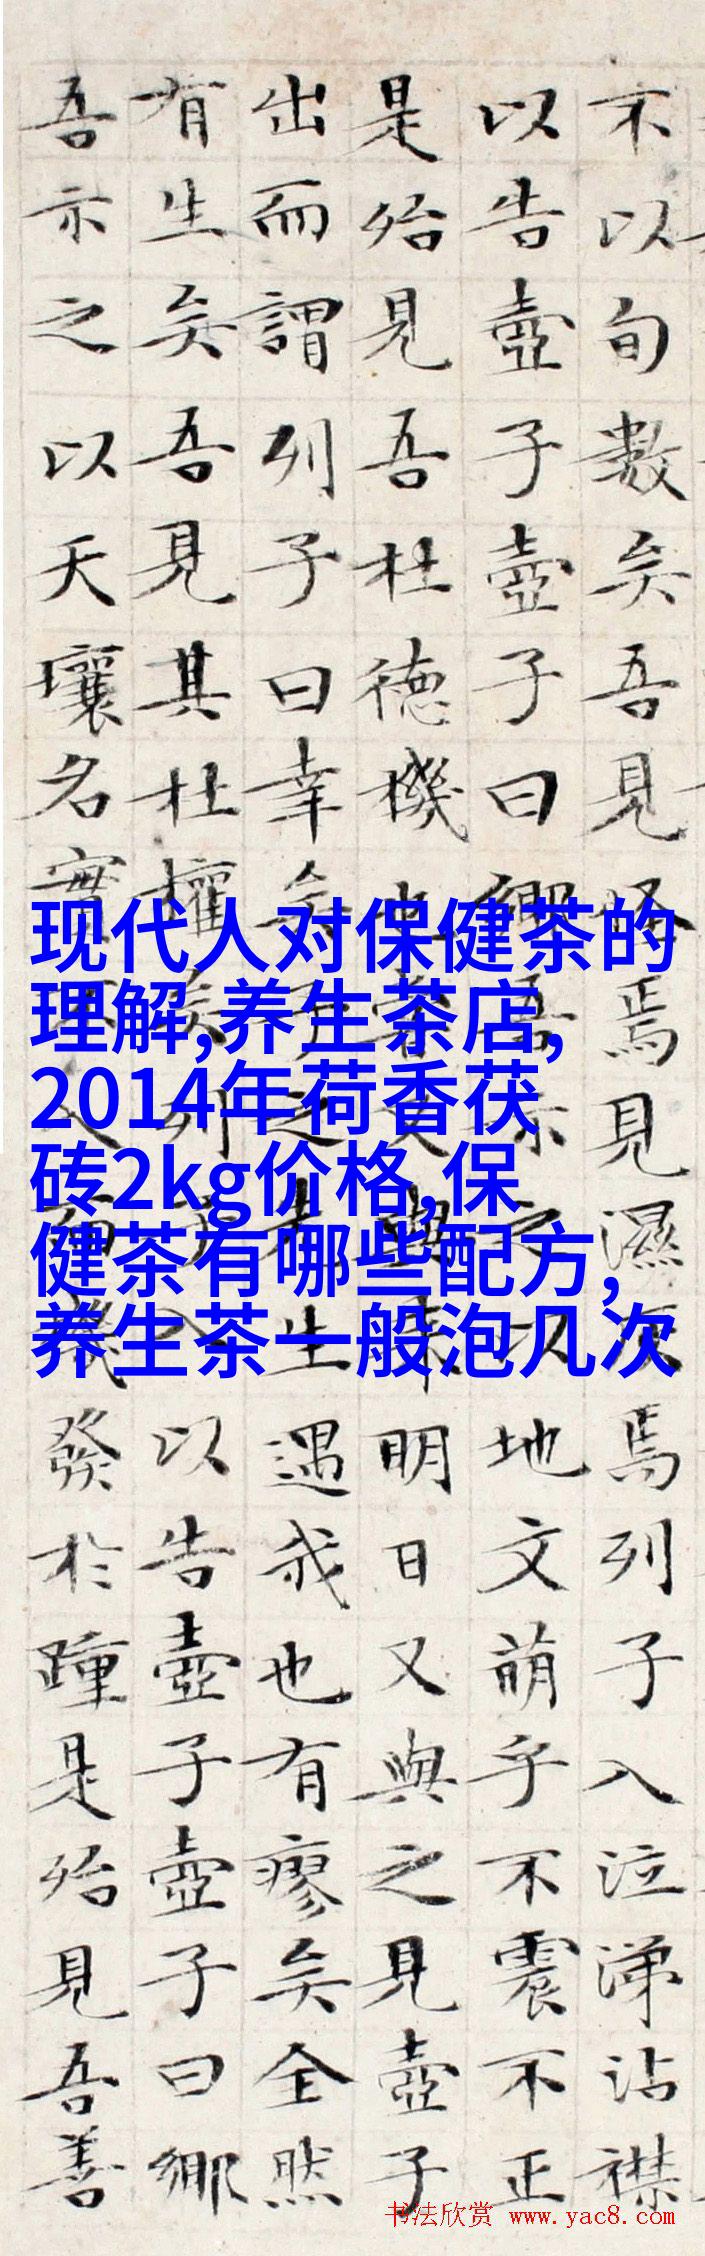 不以旬數矣吾見怪焉見濕灰焉列子入泣涕沾襟
以告壺子壺子曰鄉吾示之以地文萌乎不震不正
是殆見吾杜德機也嘗又與來明日又與之見壺子
出而謂列子曰幸矣子之先生遇我也有瘳矣全然
有生矣吾見其杜權矣列子入以告壺子壺子曰鄉
吾示之以天壤名實不入而機發於踵是殆見吾善
现代人对保健茶的
理解,养生茶店,
2014年荷香茯
砖2kg价格,保
健茶有哪些配方,
养生茶一般泡几次
书法欣赏 www.yac8.com